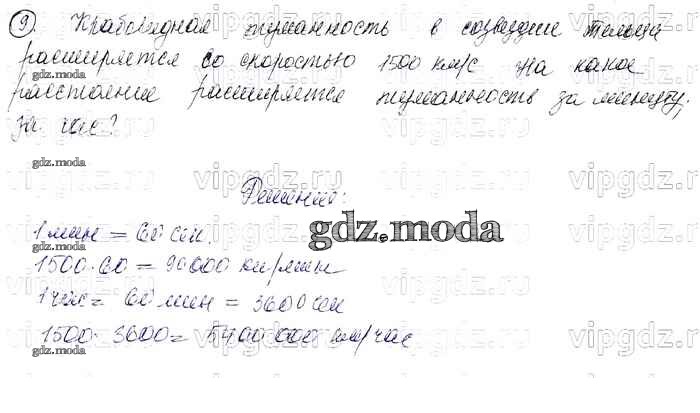 9. Крабовидная туманность в созвездии Тельца
расширяется со скоростью 1500 км/с На какое
расстояние расширяется туманность за минуту;
за час?
gdz.moda
Решение:
1 мин = 60 сек.
gdz.moda
1500·60 = 90000 км/мин
1 час = 60 мин = 3600 сек
1500·3600 = 5400 000 км/час
gdz.moda
gdz.moda
vipgdz.ru vipgdz.ru vipgdz.ru vipgdz.ru